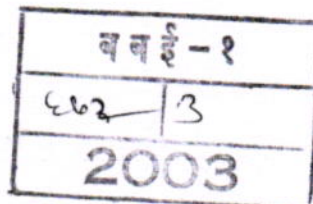 बबई-१
६७२ ३
2003